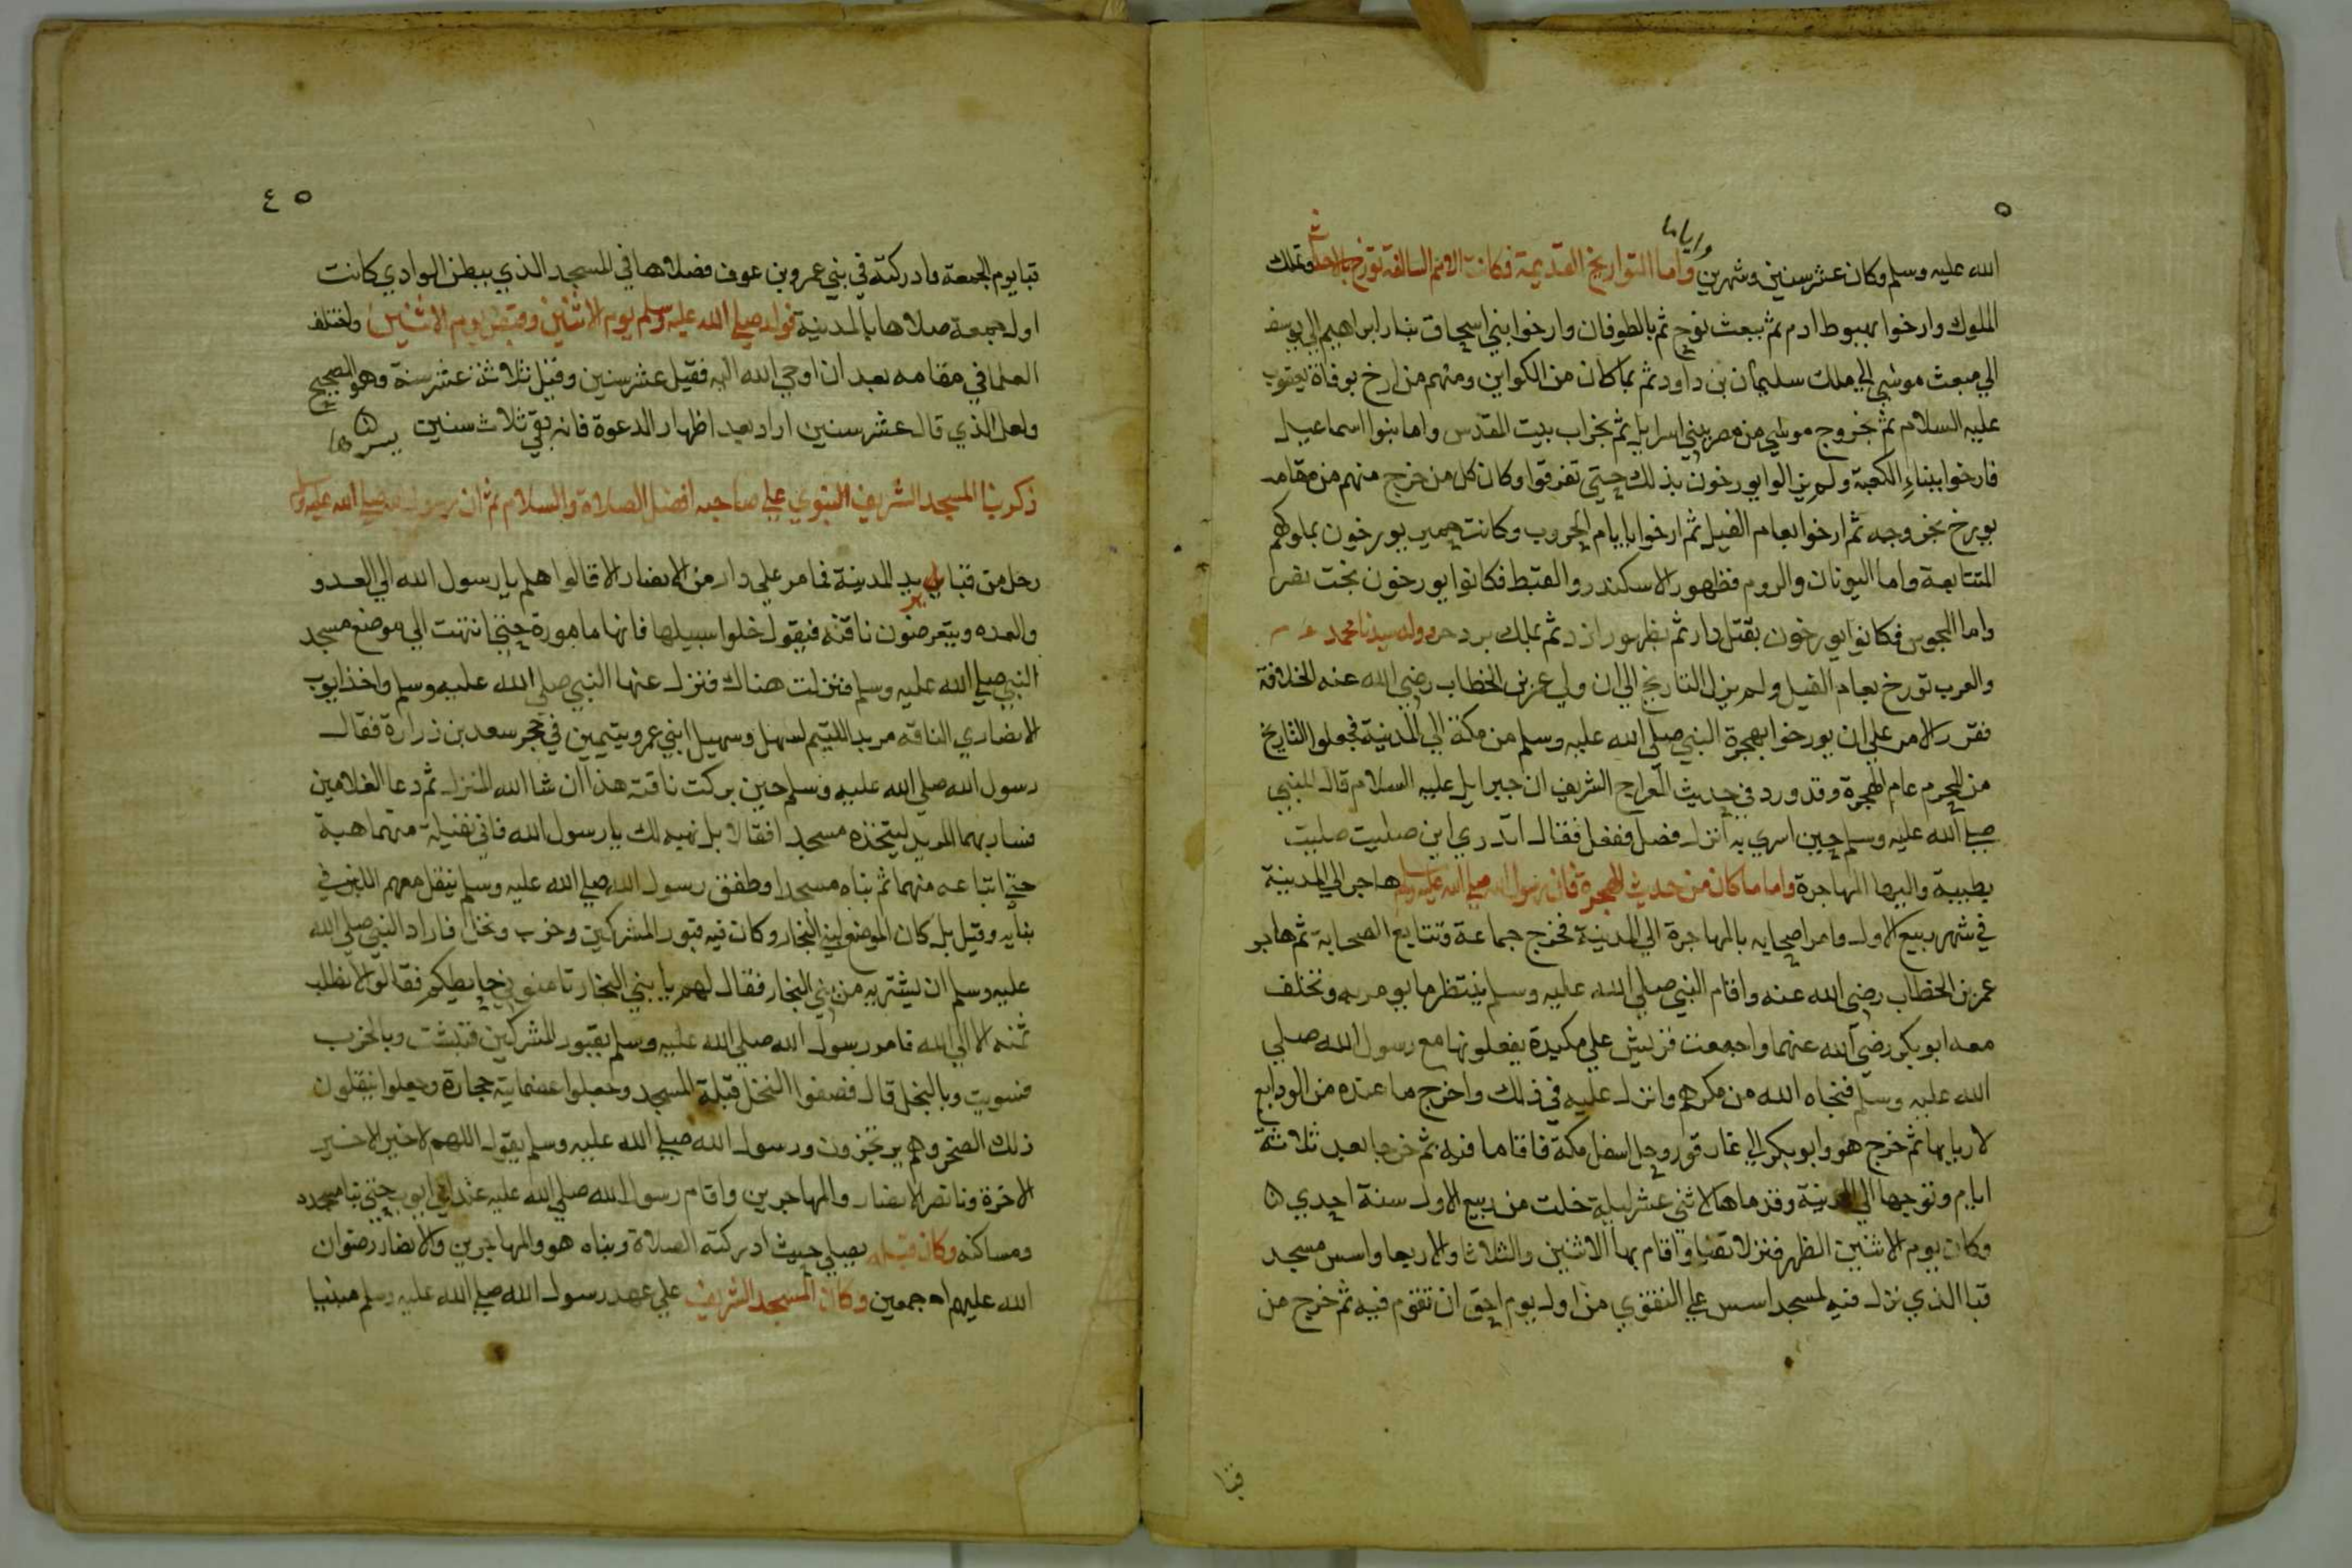 ٥
وأياما
الله عليه وسلم وكان عشر سنين وشهرين واما التواريخ القديمة فكانت الامم السالفة تورخ بالاحداث وتملك
الملوك وارخوا بهبوط ادم ثم ببعث نوح ثم بالطوفان وارخوا بني اسحاق بنار ابراهيم الي يوسف
الي مبعث موسي الي ملك سليمان بن داود ثم بما كان من الكواين ومنهم من ارخ بوفاة يعقوب
عليه السلام ثم بخروج موسي من مصر ببني اسرايل ثم بخراب بيت المقدس واما بنوا اسماعيل
فارخوا ببناء الكعبة ولم يزالوا يورخون بذلك حتي تفرقوا وكان كل من خرج منهم من مقامه
يورخ بخروجه ثم ارخوا بعام الفيل ثم ارخوا بايام الحروب وكانت حمير يورخون بملوكهم
المتتابعة واما اليونان والروم فظهور الاسكندر والقبط فكانوا يورخون بخت نصر
واما المجوس فكانوا يورخون بقتل دار ثم بظهور ازد ثم بملك يزدجرد ولد سيدنا محمد
والعرب تورخ بعام الفيل ولم يزل التاريخ الي ان ولي عمر بن الخطاب رضي الله عنه الخلافة
فقرر الامر علي ان يورخوا بهجرة النبي صلي الله عليه وسلم من مكة الي المدينة فجعلوا التاريخ
من المحرم عام الهجرة وقد ورد في حديث المعراج الشريف ان جبرايل عليه السلام قال للنبي
صلي الله عليه وسلم حين اسري به انزل فصل ففعل فقال اتدري اين صليت صليت
بطيبة واليها المهاجرة واما ما كان من حديث الهجرة فان رسول الله صلي الله عليه وسلم هاجر الي المدينة
في شهر ربيع الاول وامر اصحابه بالمهاجرة الي المدينة فخرج جماعة وتتابع الصحابة ثم هاجر
عمر بن الخطاب رضي الله عنه واقام النبي صلي الله عليه وسلم ينتظر ما يومر به وتخلف
معه ابو بكر رضي الله عنهما واجمعت قريش علي مكيدة يفعلونها مع رسول الله صلي
الله عليه وسلم فنجاه الله من مكرهم وانزل عليه في ذلك واخرج ما عنده من الودايع
لاربابها ثم خرج هو وابو بكر الي غار ثور وجبل اسفل مكة فاقاما فيه ثم خرجا بعد ثلاثة
ايام وتوجها الي المدينة وقدماها لاثني عشر ليلة خلت من ربيع الاول سنة احدي
وكان يوم الاثنين الظهر فنزلا بقبا واقام بها الاثنين والثلاثا والاربعا واسس مسجد
قبا الذي نزل فيه لمسجد اسس علي التقوي من اول يوم احق ان تقوم فيه ثم خرج من
قبا
٤٥
قبا يوم الجمعة وادركته في بني عمرو بن عوف فصلاها في المسجد الذي ببطن الوادي كانت
اول جمعة صلاها بالمدينة فولد صلي الله عليه وسلم يوم الاثنين وقبض يوم الاثنين واختلف
العلما في مقامه بعد ان اوحي الله اليه فقيل عشر سنين وقيل ثلاثة عشر سنة وهو الصحيح
ولعل الذي قال عشر سنين اراد بعد اظهار الدعوة فانه بقي ثلاث سنين يسرها
ذكر بنا المسجد الشريف النبوي علي صاحبه افضل الصلاة والسلام ثم ان رسول الله صلي الله عليه وسلم
رحل من قبا يريد المدينة فما مر علي دار من الانصار الا قالوا هلم يا رسول الله الي العدو
والعده ويتعرضون ناقته فيقول خلوا سبيلها فانها مامورة حتي انتهت الي موضع مسجد
النبي صلي الله عليه وسلم فنزلت هناك فنزل عنها النبي صلي الله عليه وسلم واخذ ايوب
الانصاري الناقه مربد اللتيم لسهل وسهيل ابني عمرو يتيمين في حجر سعد بن زرارة فقال
رسول الله صلي الله عليه وسلم حين بركت ناقته هذا ان شا الله المنزل ثم دعا الغلامين
فساربهما المربد ليتخذه مسجد افقالا بل نهبه لك يا رسول الله فاني نقبله منهما هبة
حتي ابتاعه منهما ثم بناه مسجدا وطفق رسول الله صلي الله عليه وسلم ينقل معهم اللبن في
بنايه وقيل بل كان الموضع لبني النجار وكان فيه قبور المشركين وخرب ونخل فاراد النبي صلي الله
عليه وسلم ان يشتريه من بني النجار فقال لهم يا بني النجار ثامنوني حايطكم فقالوا لا نطلب
ثمنه الا الي الله فامر رسول الله صلي الله عليه وسلم بقبور المشركين فنبشت وبالخرب
فسويت وبالنخل قال فصفوا النخل قبلة المسجد وجعلوا عضمايته حجارة وجعلوا ينقلون
ذلك الصخر وهم يرتجزون ورسول الله صلي الله عليه وسلم يقول اللهم لا خير الا خير
الاخرة فانصر الانصار والمهاجرين واقام رسول الله صلي الله عليه عند ابي ايوب حتي بنا مسجده
ومساكنه وكان قبله يصلي حيث ادركته الصلاة وبناه هو والمهاجرين والانصار رضوان
الله عليهم اجمعين وكان المسجد الشريف علي عهد رسول الله صلي الله عليه وسلم مبنيا